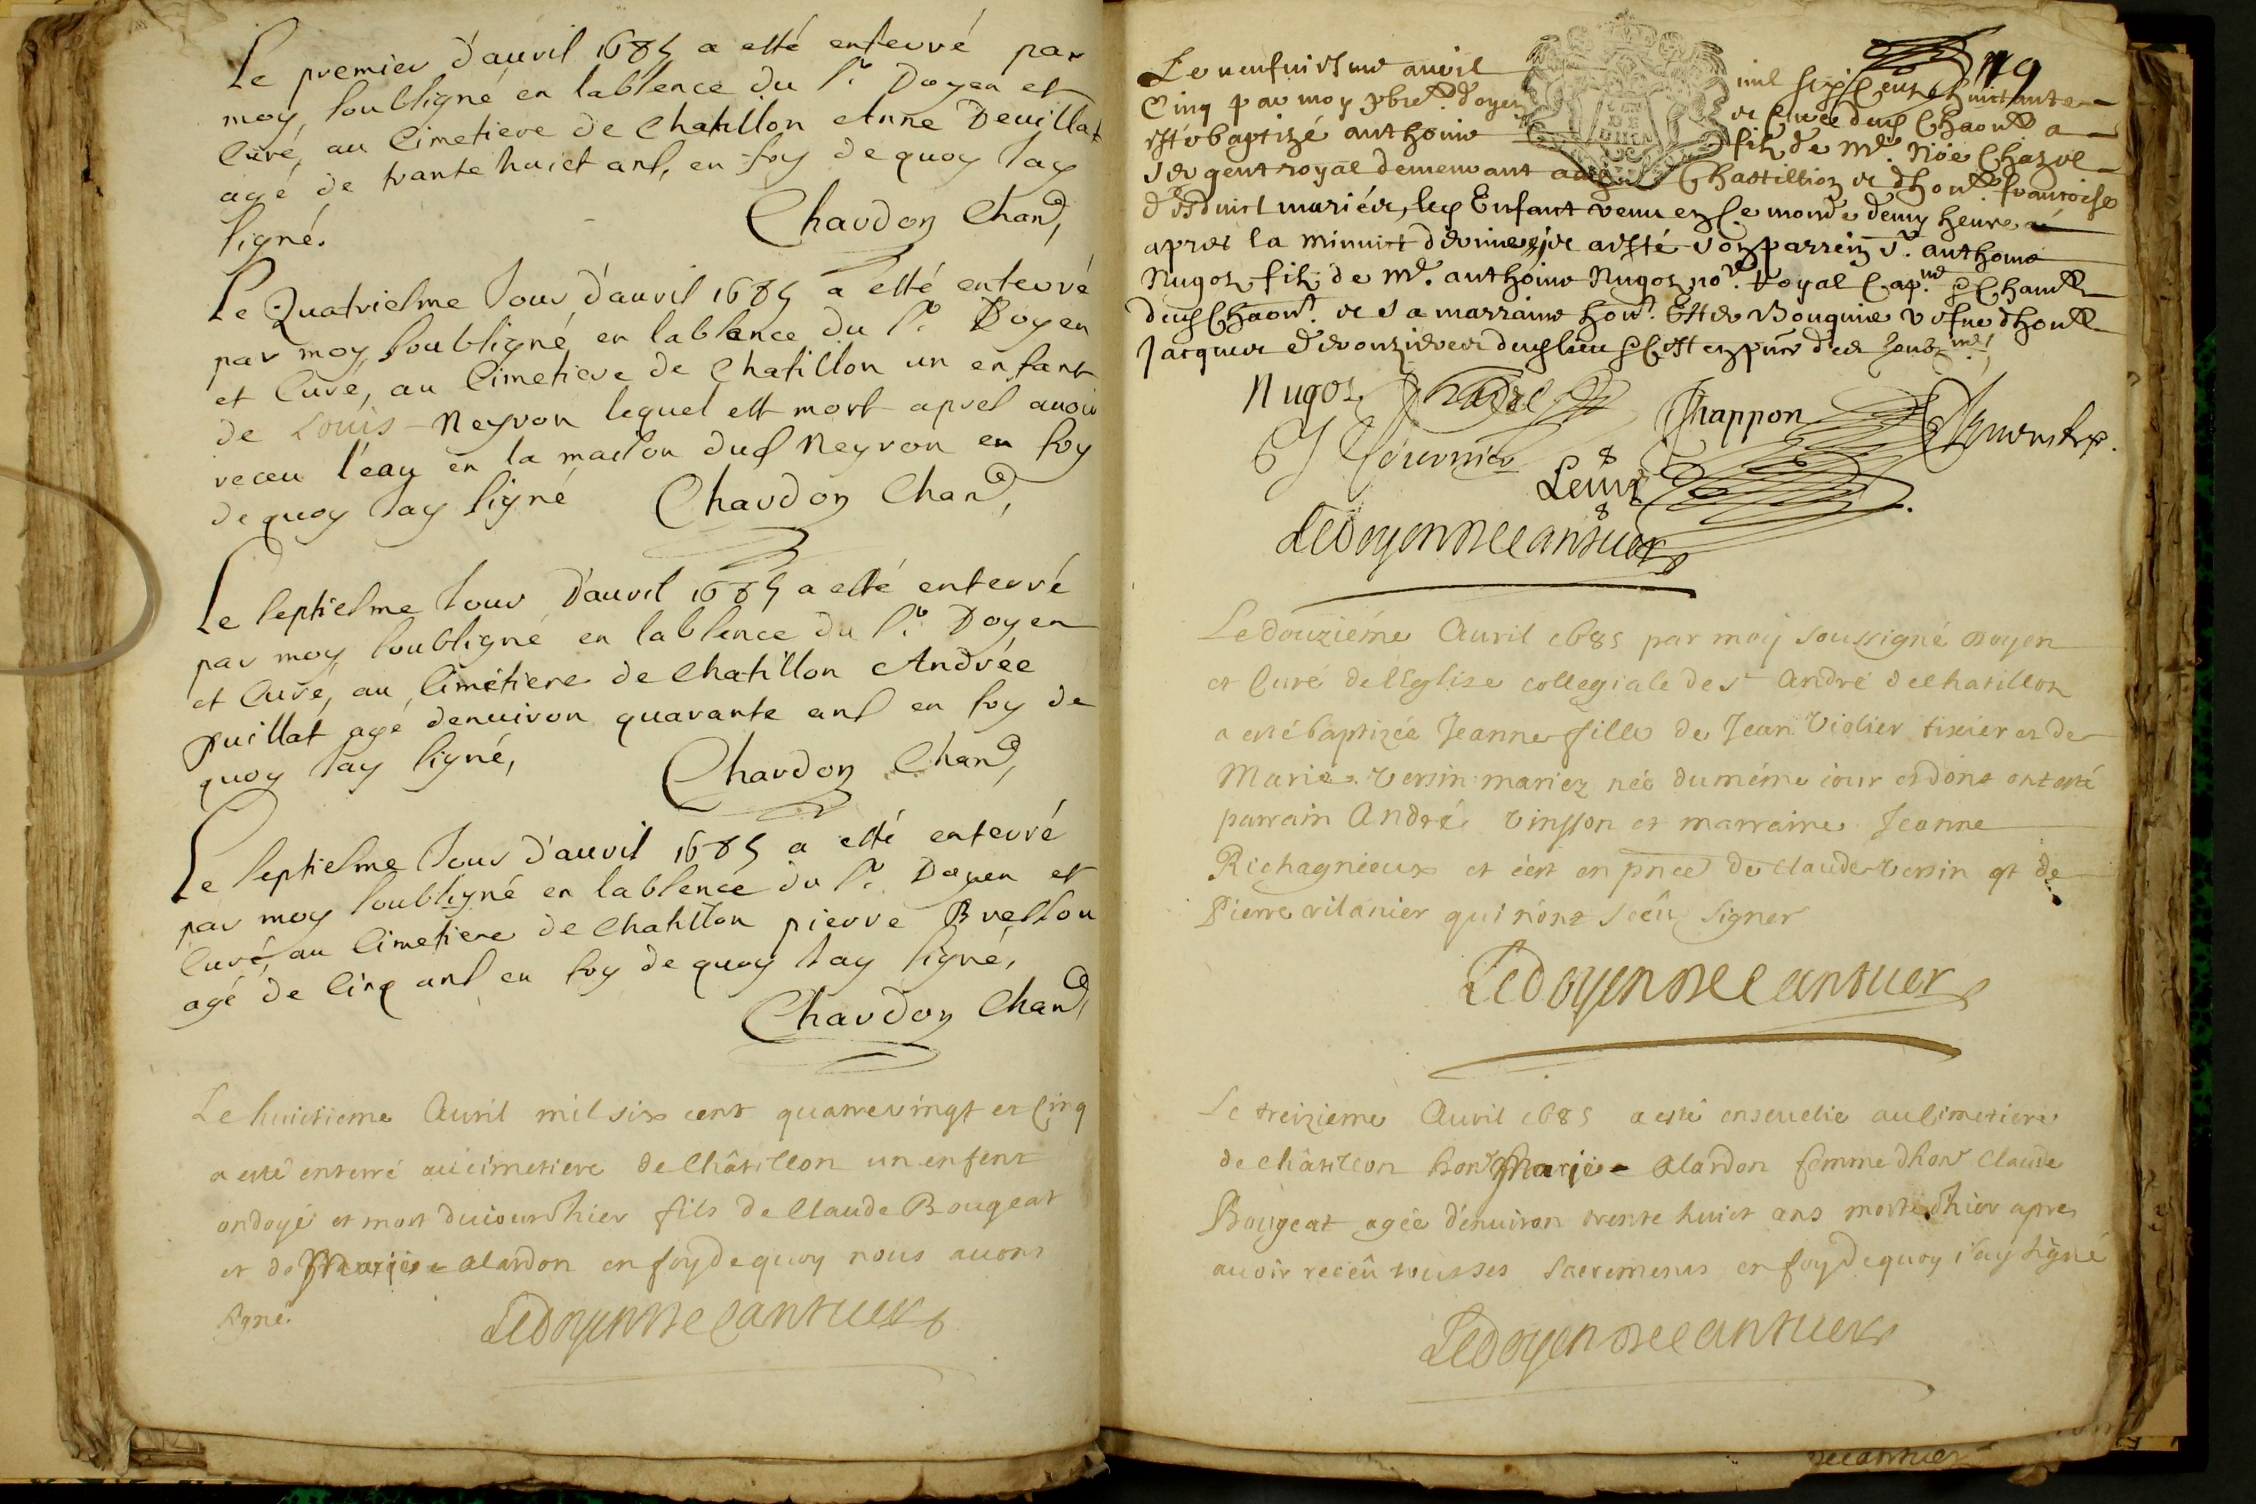 Le premier d'auril 1685 a esté enterré par
moy soubsigné en labsence du sr. Doyen et
Curé, au Cimetiere de Chatillon Anne Deuillat
agé de trante huict ans, en foy de quoy Jay
signé.
Chardon Chane,
Le Quatriesme Jour d'auril 1685 a esté enterré
par moy soubsigné en labsence du sr. Doyen
et Curé, au Cimetiere de Chatillon un enfant
de Louis Neyron lequel est mort apres auoir
receu l'eau en la maison dud Neyron en foy
de quoy Jay signé Chardon Chane,
Le septiesme Jour D'auril 1685 a esté enterré
par moy soubsigné en labsence du sr. Doyen
et Curé, au Cimetiere de Chatillon Andrée
puillat agé denuiron quarante ans en foy de
quoy Jay signé,
Chardon Chane,
Le septiesme Jour d'auril 1685 a esté enterré
par moy soubsigné en labsence du sr. Doyen et
Curé, au Cimetiere de Chatillon pierre Bresson
agé de Cinq ans en foy de quoy Jay signé,
Chardon Chane,
Le huictieme Auril mil six cent quatrevingt et Cinq
a esté enterré au cimetiere de Châtillon un enfent
ondoyé et mort du iourd'hier fils de Claude Bougeat
et de Marie Alardon en foy de quoy nous auons
signé.
Ledoyen Decantuer
79
Le neufuiesme auril mil six Cent huictante
Cinq par moy pbre doyen et Curé dud Chaon a
esté baptizé anthoine filz de Me. Noé Chazel
sergent royal demeurant aud Chastillion et dhon francoise
mariés, led Enfant venu en Ce monde demy heure
apres la minuict derniere, et a esté son parrein Sr. anthoine
Nugoz filz de Me. anthoine Nugoz nore. Royal
dud Chaon. et sa marraine hon. Ester Bouquin vefue dhon
Jacques dud lieu
Nugoz Chazel Chappon
Fournier
Ledoyen Decantuer
Le douziéme Auril 1685 par moy soussigné Doyen
et Curé de l'Eglise collegiale de St André de Chatillon
a esté baptizée Jeanne fille de Jean Violier tixier et de
Marie Versin mariez née du méme iour et dont ont esté
parrain André Vinsson et marraine Jeanne
Richagneux et c'est en pnce de Claude Versin et de
Pierre vilanier qui n'ont sçeû signer
Ledoyen Decantuer
Le treizieme Auril 1685 a esté enseuelie au Cimetiere
de châtillon hon Marie Alardon femme dhon Claude
Bougeat agée d'enuiron trente huict ans morte d'hier apres
auoir receû tous ses sacrements en foy de quoy i'ay signé
Ledoyen Decantuer
decantuer